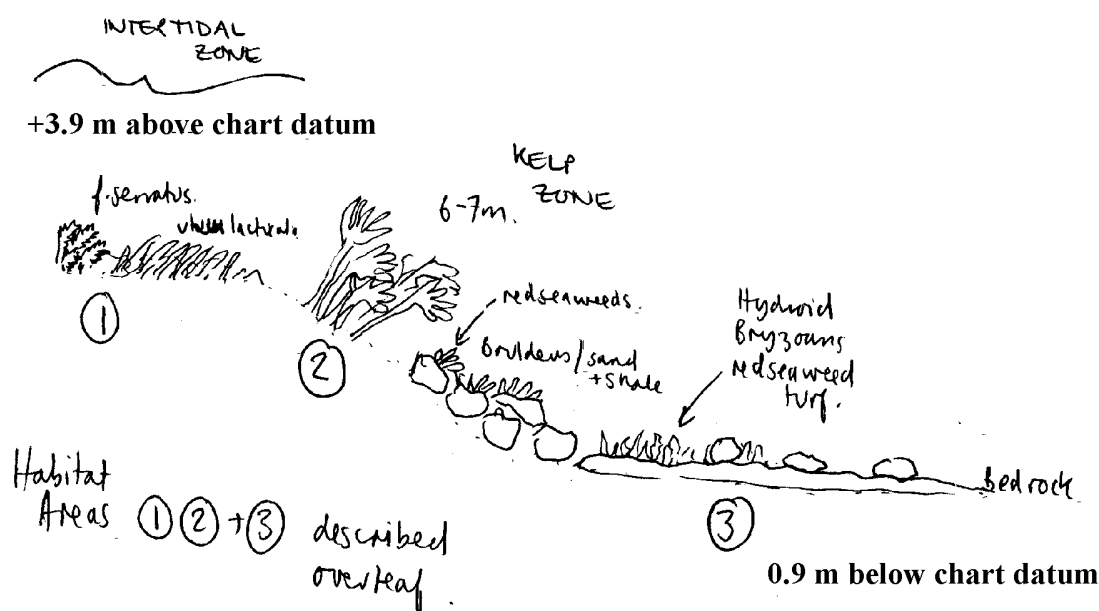 INTERTIDAL
ZONE
+3.9 m above chart datum
KELP
ZONE
6-7m.
f. serratus.
lactuca
①
②
red seaweeds.
Boulders / sand
+ shale
Hydroid
Bryzoans
red seaweed
turf.
Bedrock
③
Habitat
Areas ① ② + ③ described
overleaf.
0.9 m below chart datum